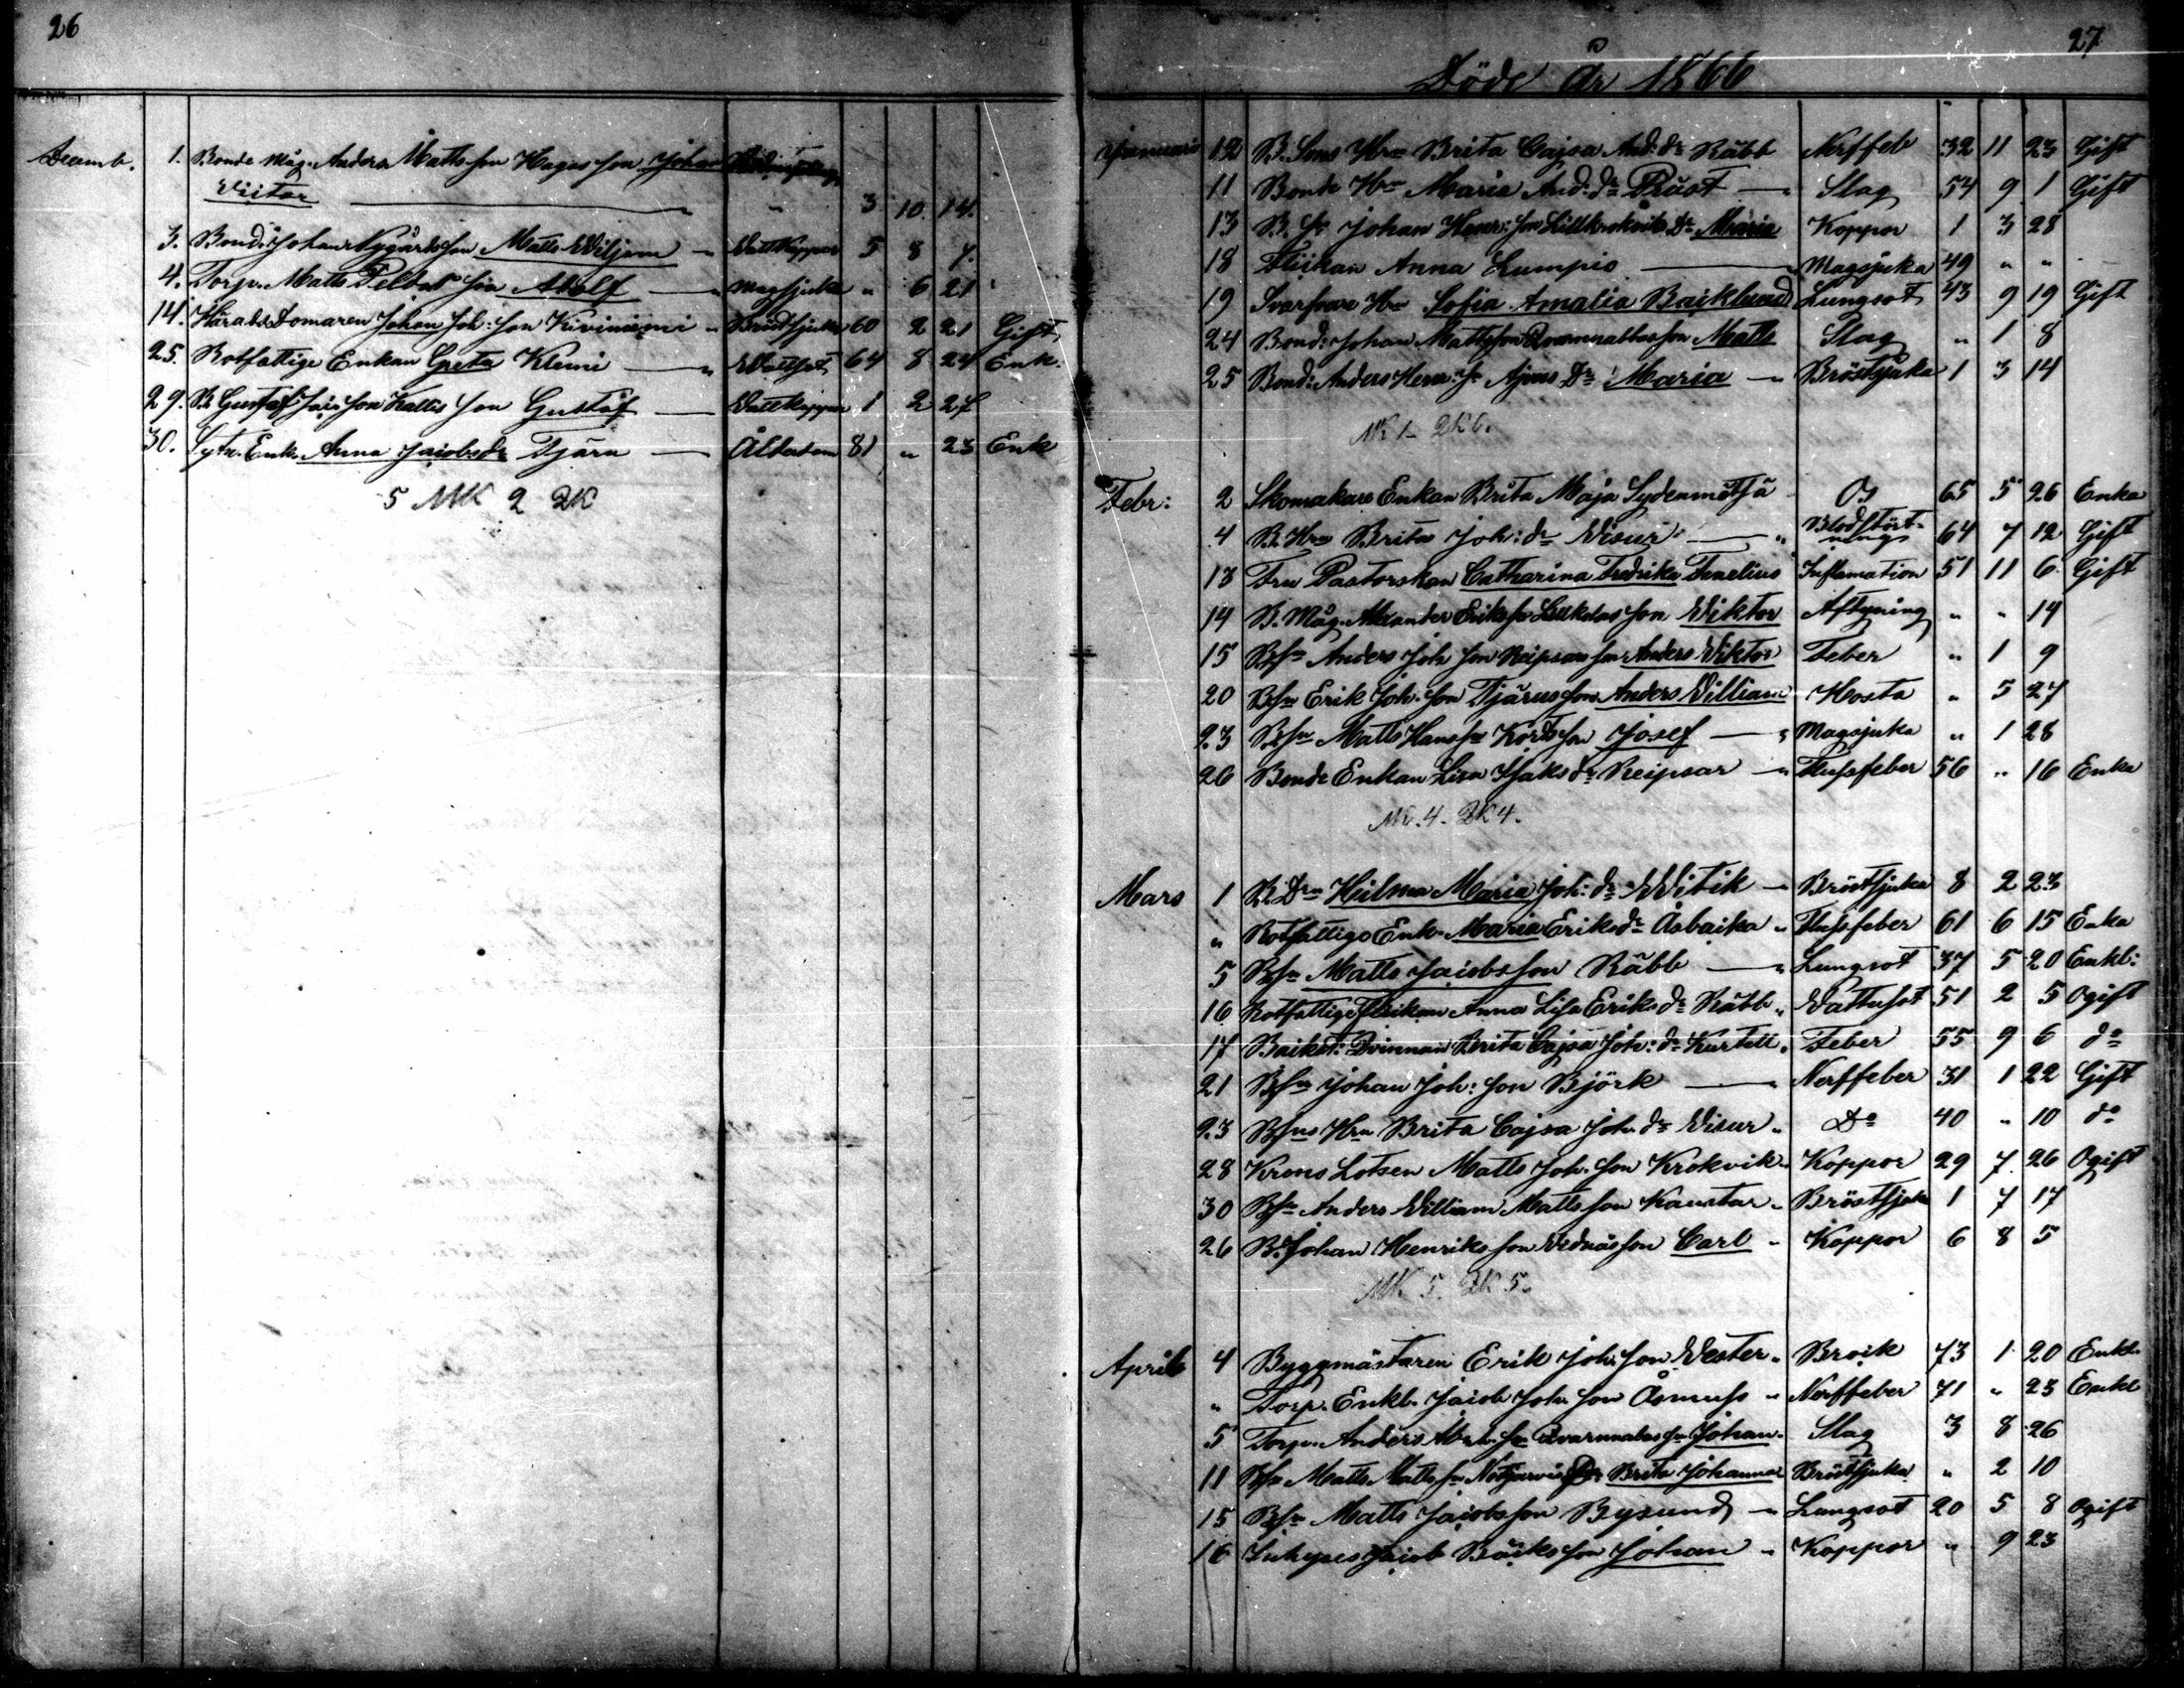 26
Decemb. 1. Bonde Måg. Anders Matts son Hagas son Johan
Victor — " 3 10 14.
3. Bond. Johan Nygårds son Matts Wiljam — Vattkoppor 5 8 7.
4. Torp. Matts Peltas son Adolf — Magsjuka " 6 21
14. Härads Domaren Johan Joh: son Kiviniemi " Bröstsjuka 60 2 21 Gift
25. Rotfattige Enkan Greta Klemi — Wattsot 64 8 24 Enk.
29. B. Gustaf son Kattis son Gustaf — Vattkoppor 1 2 27
30. Sytn. Enk. Anna Jacobs dr Tjäru — Ålderdom 81 " 23 Enk
5 MK 2 QK
27
Döde År 1866
Januari 12 B. Sons Hru Brita Cajsa And: dr Räbb Nerffeb 32 11 23 Gift
11 Bonde Hru Maria And: dr Prust — Slag 54 9 1 Gift
13 B. Sn Johan Henr: son Lillkrokviks Dr Maria Koppor 1 3 28
18 Flickan Anna Lumpio — Magsjuka 49 " "
19 Svarfvare Hru Sofia Amalia Backlund Lungsot 43 9 19 Gift
24 Bond: Johan Mattsson Qvarnnabbas son Matts Slag " 1 8
25 Bond: Anders Henr: sn Ajous Dr Maria — Bröstsjuka 1 3 14
MK 1 – QK 6.
Febr: 2 Skomakare Enkan Brita Maja Sydänmetsä Os 65 5 26 Enka
4 B. Hru Brita Joh: dr Visuri — " Blodstört-
nings 64 7 12 Gift
13 Fru Pastorskan Catharina Fredrika Fenelius Inflamation 51 11 6 Gift
14 B. Måg. Alexander Eriks sn son Wiktor Aftyning " " 14
15 Bsn Anders Joh son Reipsars son Anders Viktor Feber " 1 9
20 Bsn Erik Joh. son Tjärus son Anders William Hosta " 5 27
23 Bsn Matts Hans sn Korts son Josef — " Magsjuka " 1 28
26 Bonde Enkan Lisa Isaks dr Reipsar — " Flussfeber 56 " 16 Enka
MK. 4. QK 4.
Mars 1 B. Drn Hilma Maria Joh: dr Witik — Bröstsjuka 8 2 23
" Rotfattige Enk. Maria Eriks dr Åsbacka " Flussfeber 61 6 15 Enka
5 Bsn Matts Jacobs son Räbb — " Lungsot 37 5 20 Enkl:
16 Rotfattige Flickan Anna Lisa Eriks dr Räbb " Vattusot 51 2 5 Ogift
17 Backst: Qvinnan Brita Cajsa Joh: dr Kurtell " Feber 55 9 6 do
21 Bsn Johan Joh: son Björk — " Nerffeber 31 1 22 Gift
23 Bsns Hru Brita Cajsa Joh. dr Visur " Do 40 " 10 do
28 Krons Lotsen Matts Joh. son Krokvik " Koppor 29 7 26 Ogift
30 Bsn Anders William Matts son Kaustar " Bröstsjuka 1 7 17
26 B. Johan Henriks son Vednäs son Carl " Koppor 6 8 5
MK 5. QK 5.
April 4 Byggmästaren Erik Joh: son Wester " Brock 73 1 20 Enkl.
" Torp. Enkl. Jacob Joh. son Åsmuss " Nerffeber 71 " 23 Enkl
5 Torp. Anders sn Qvarnnabas sn Johan " Slag 3 8 26
11 Bsn Matts Matts sn Notgärvis Dr Brita Johanna Bröstsjuka " 2 10
15 Bsn Matts Jacobs son Bysund — " Lungsot 20 5 8 Ogift
16 Inhyses Jacob Backs son Johan " Koppor " 9 23